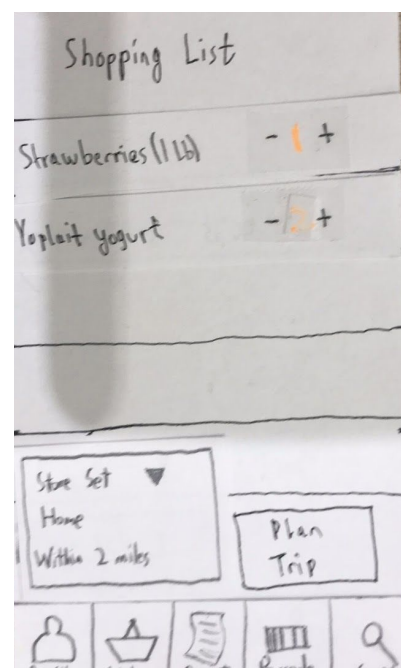 Shopping List
Strawberries (1 Lb) - 1 +
Yoplait yogurt - 2 +
Store Set ▼
Home
Within 2 miles
Plan
Trip